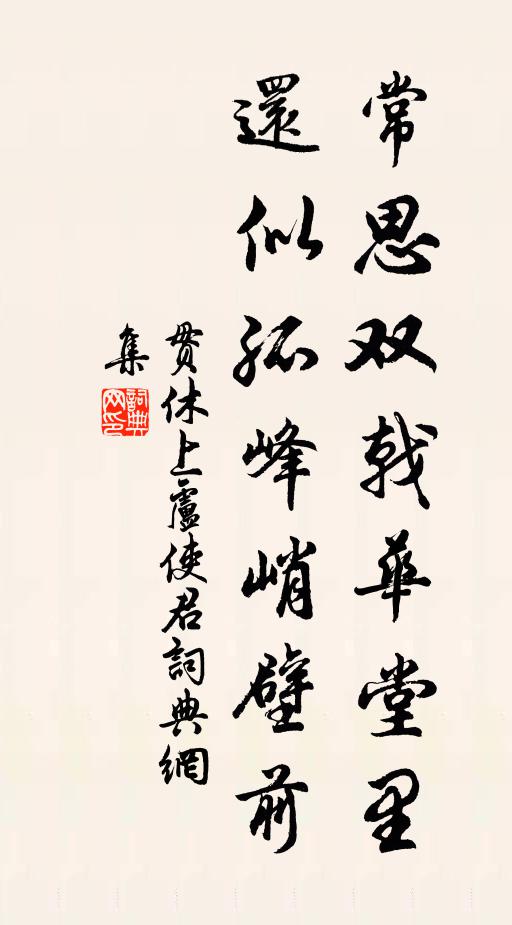 常思双戟華堂里
還似孤峰峭壁前
貫休上盧使君詞典網
集
詞典
网印